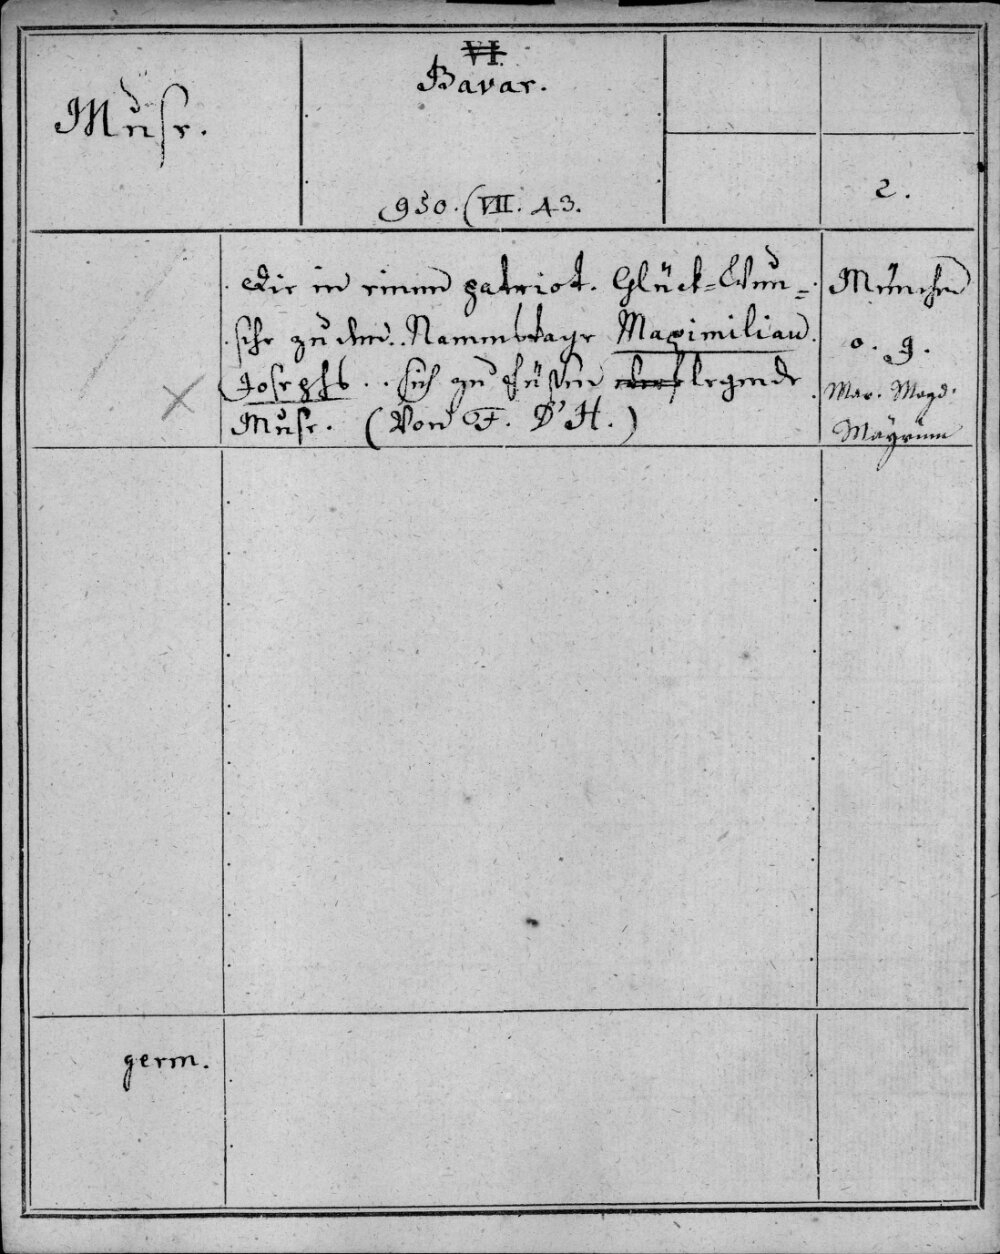 VI.
Bavar.
Muse.
950. (VII. 43.
2.
Die in einem patriot. Glück-Wun-
sche zu dem.. Namenstage Maximilian
Josephs .. sich zu Füßen legende
Muse. (Von F. D'H.)
München
o. J.
Mar. Magd.
Mayrinn
germ.